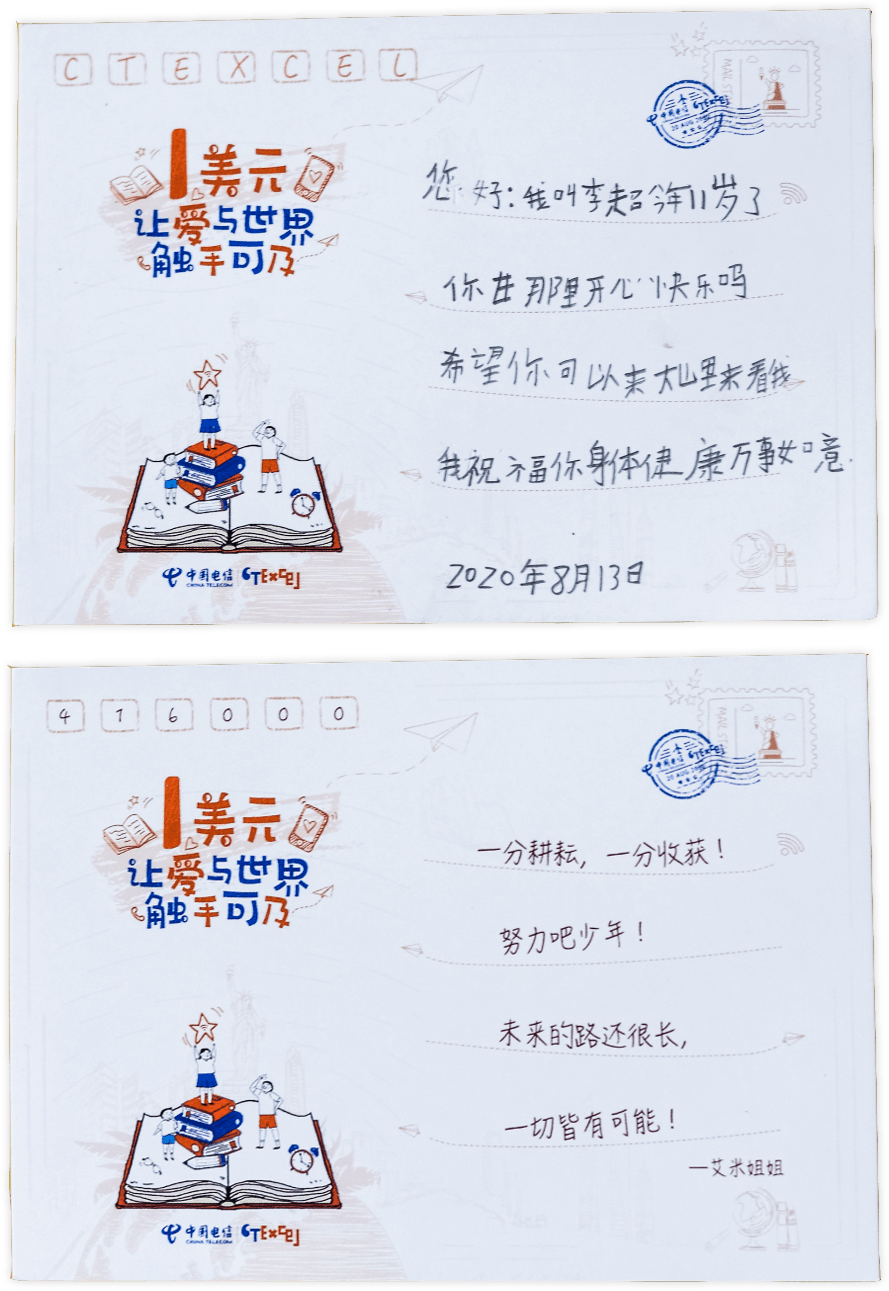 CTEXCEL
1美元
让爱与世界
触手可及
中国电信 CTExcel
CHINA TELECOM
MAIL STAMP
中国电信 CTExcel
20 AUG 2020
您好:我叫李超今年11岁了
你在那里开心快乐吗
希望你可以来大山里来看我
我祝福你身体健康万事如意.
2020年8月13日
416000
1美元
让爱与世界
触手可及
中国电信 CTExcel
CHINA TELECOM
中国电信 CTExcel
20 AUG 2020
一分耕耘,一分收获!
努力吧少年!
未来的路还很长,
一切皆有可能!
—艾米姐姐